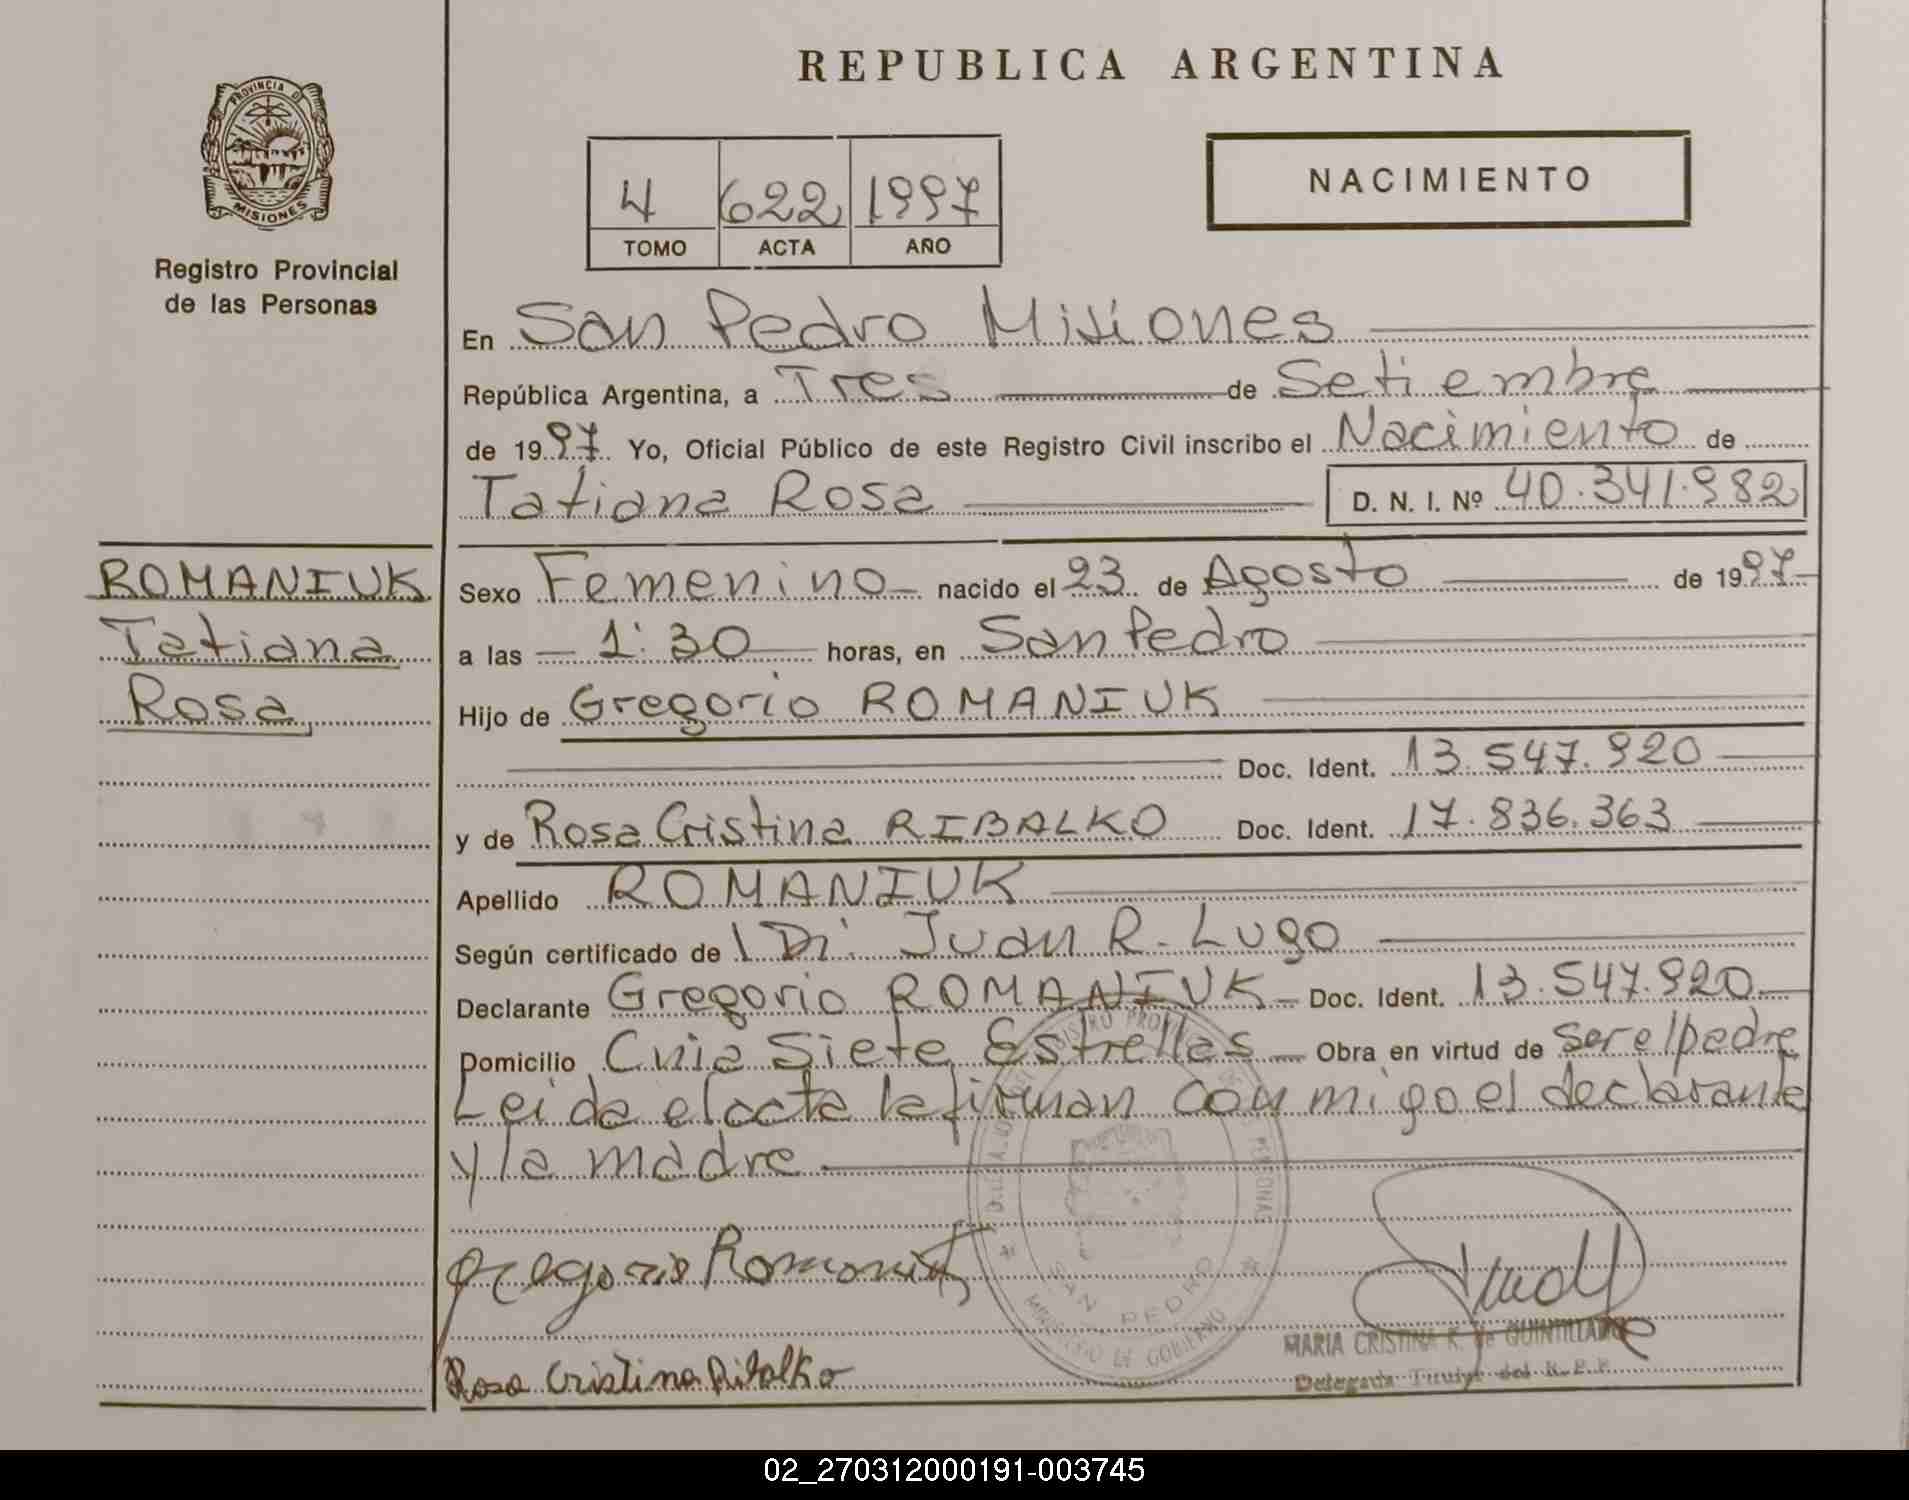 REPUBLICA ARGENTINA
PROVINCIA DE
MISIONES
Registro Provincial
de las Personas
4 622 1997
TOMO ACTA AÑO
NACIMIENTO
En San Pedro Misiones
República Argentina, a Tres de Setiembre
de 1997 Yo, Oficial Público de este Registro Civil inscribo el Nacimiento de
Tatiana Rosa D. N. I. Nº 40.341.982
ROMANIUK
Tatiana
Rosa
Sexo Femenino nacido el 23 de Agosto de 1997
a las 1:30 horas, en San Pedro
Hijo de Gregorio ROMANIUK
Doc. Ident. 13.547.920
y de Rosa Cristina RIBALKO Doc. Ident. 17.836.363
Apellido ROMANIUK
Según certificado de Juan R. Lugo
Declarante Gregorio ROMANIUK Doc. Ident. 13.547.920
Domicilio Cnia Siete Estrellas Obra en virtud de ser el padre
Leida el acta la firman conmigo el declarante
y la madre
SAN PEDRO
MINISTERIO DE GOBIERNO
Gregorio
MARIA CRISTINA R. de QUINTILLAN
Delegada Titular del R. P. P.
Rosa Cristina Ribalko
02_270312000191-003745